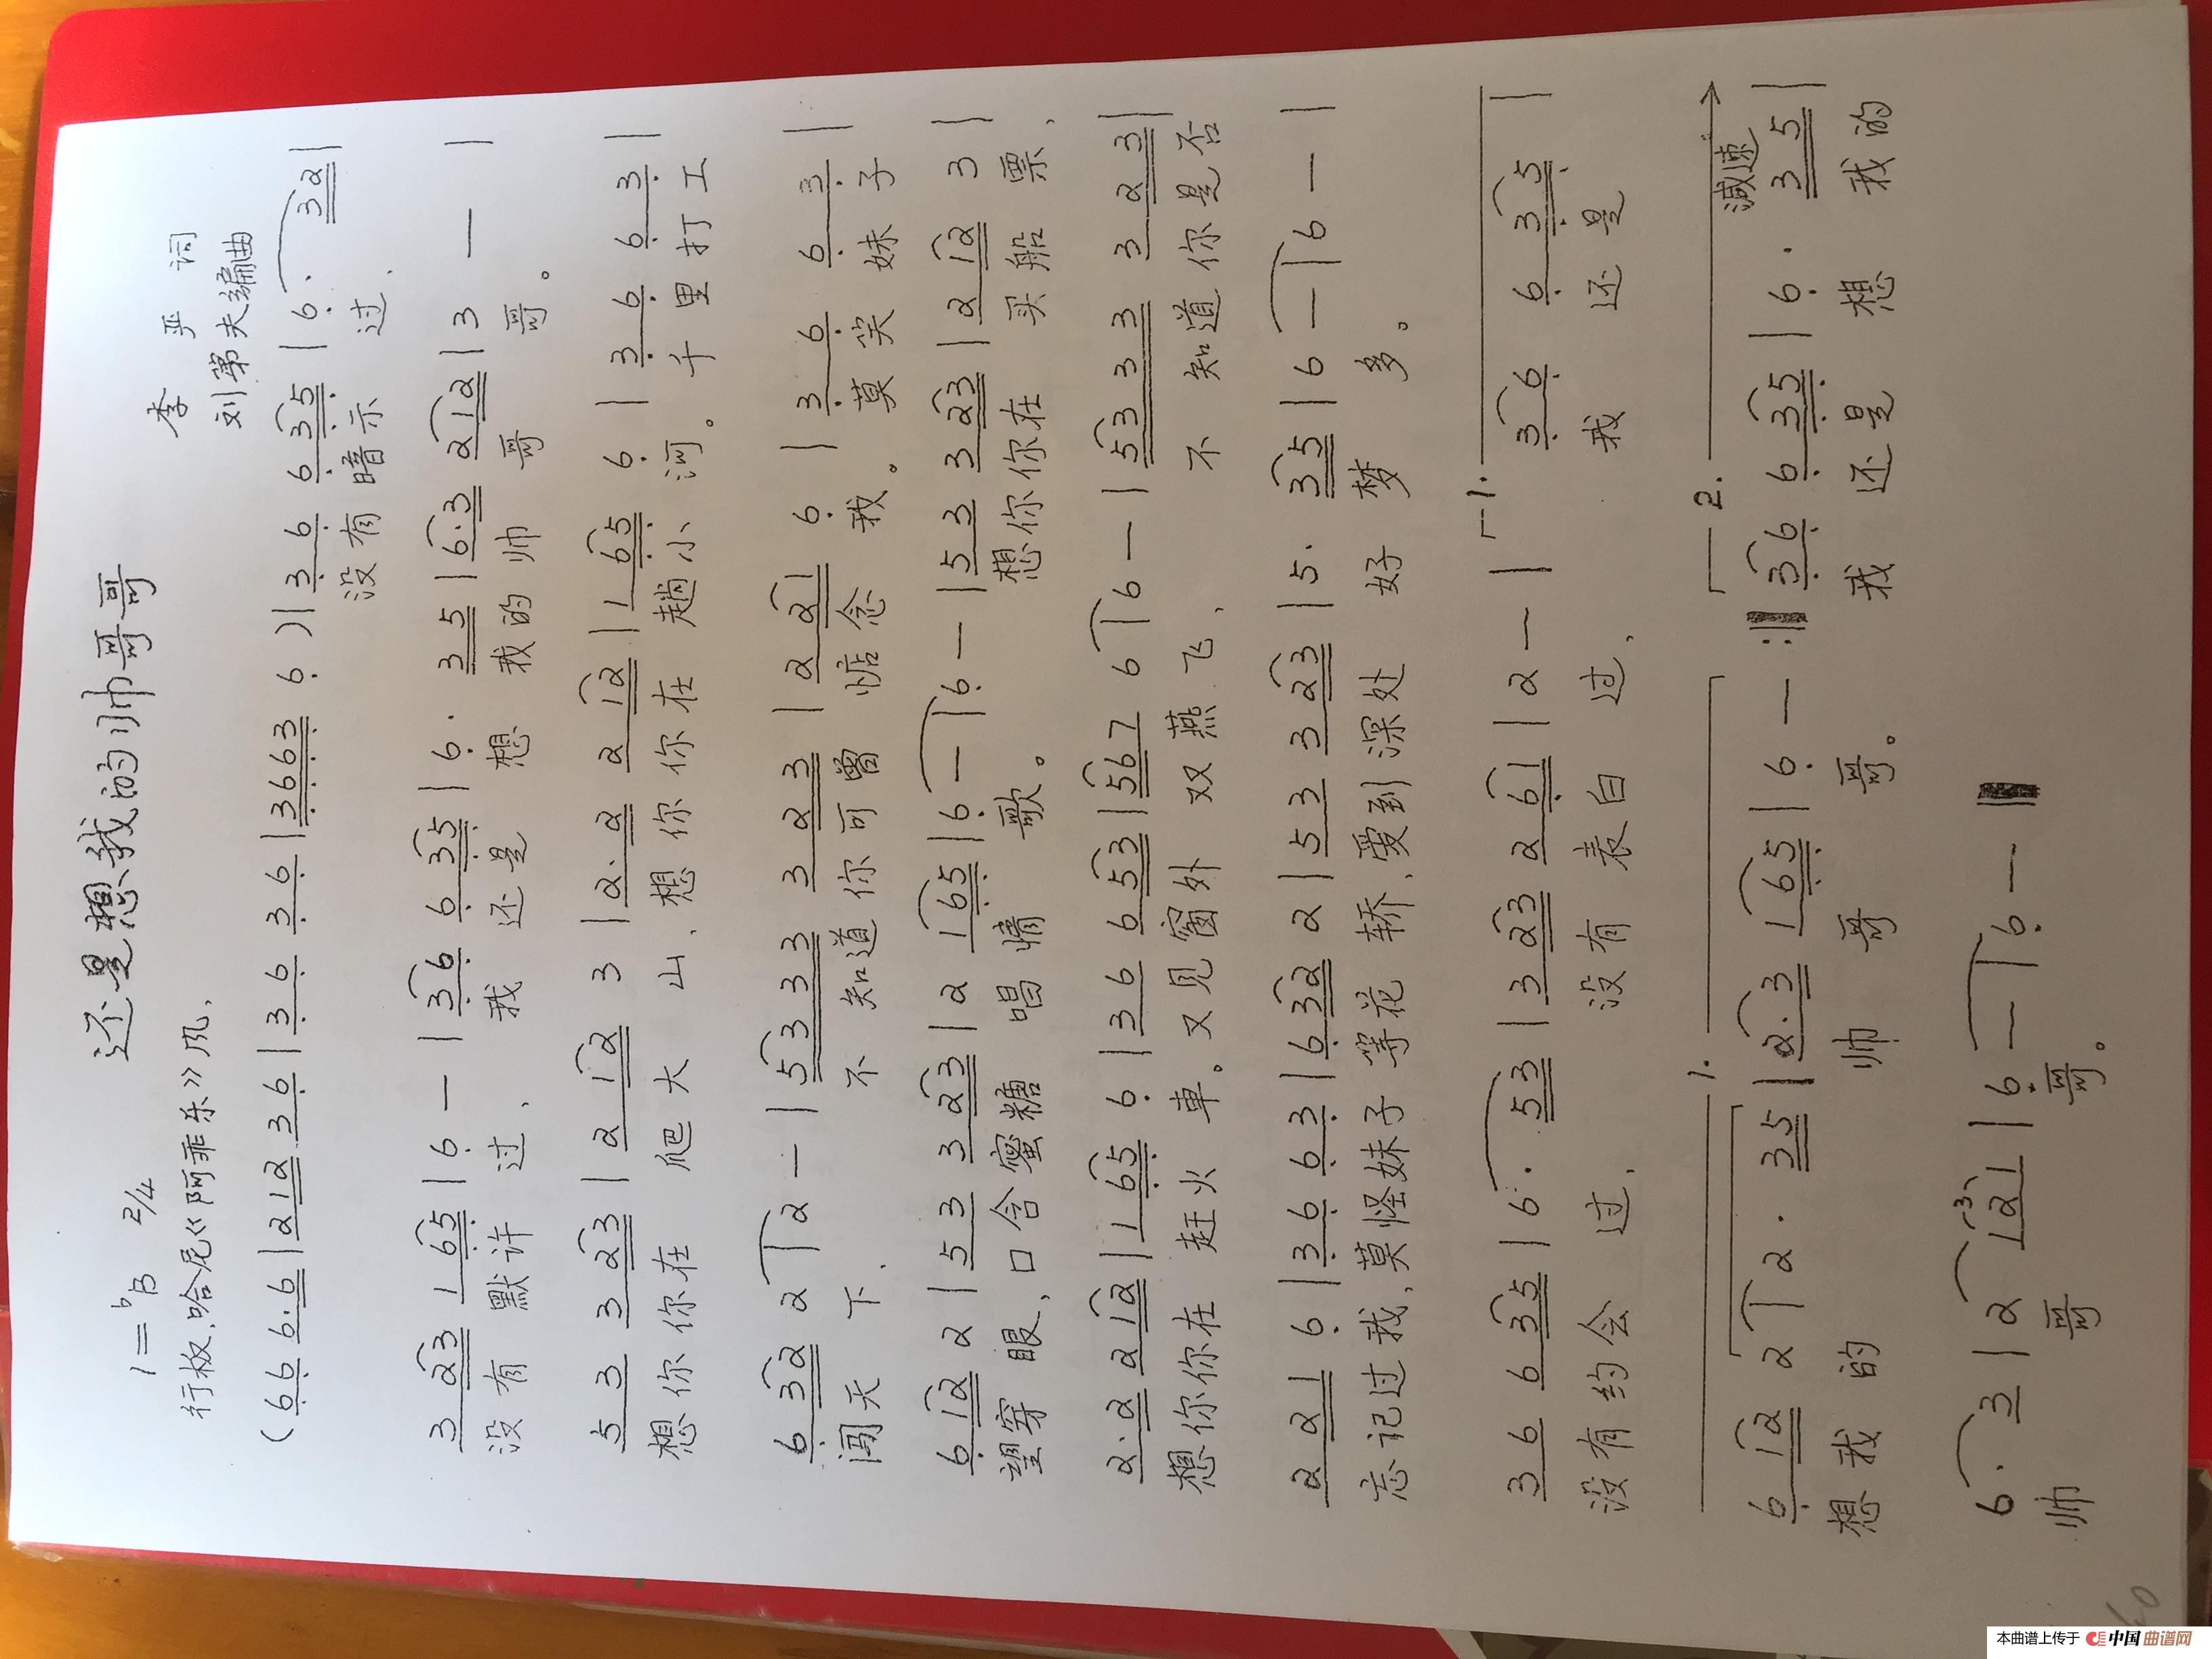 还是想我的帅哥哥
1=ᵇB 2/4
李 严 词
行板.哈尼《阿乖乐》风.
刘第夫编曲
(66 6·6|2 12 36|36 36|3663 6)|36 6 35|6· 32|
没有 暗示 过.
3 23 1 65|6 —|36 6 35|6· 35|6·3 2 12|3 —|
没有 默许 过. 我 还是 想 我的 帅 哥 哥。
53 3 23|2 12 3|2·2 2 12|1 65 6|36 63|
想你你在 爬大山.想你你在 趟小河。 千里打工
6 32 2|2 —|5333 3 23|2 21 6|36 63|
闯天下. 不知道你可曾惦念我。莫笑妹子
6 12 2|53 3 23|2 1 65|6 —|6 —|53 3 23|2 12 3|
望穿眼.口含蜜糖唱情歌。 想你你在 买船票.
2·2 2 12|1 65 6|36 6 53|567 6|6 —|5333 3 23|
想你你在 赶火車。又见窗外双燕飞. 不知道你是否
2 21 6|36 63|6 32 2|53 3 23|5· 35|6 —|6 —|
忘记过我.莫怪妹子等花轿.爱到深处好梦多。
36 6 35|6· 53|3 23 2 61|2 —|1. 36 6 35|
没有约会过. 没有表白过. 我 还是
1. 2. 减速
6 12 2|2· 35|2·3 1 65|6 —:‖36 6 35|6· 35|
想我的 帅 哥 哥。 我 还是 想 我的
6· 3|2 121|6 —|6 —‖
帅 哥 哥。
本曲谱上传于 中国曲谱网